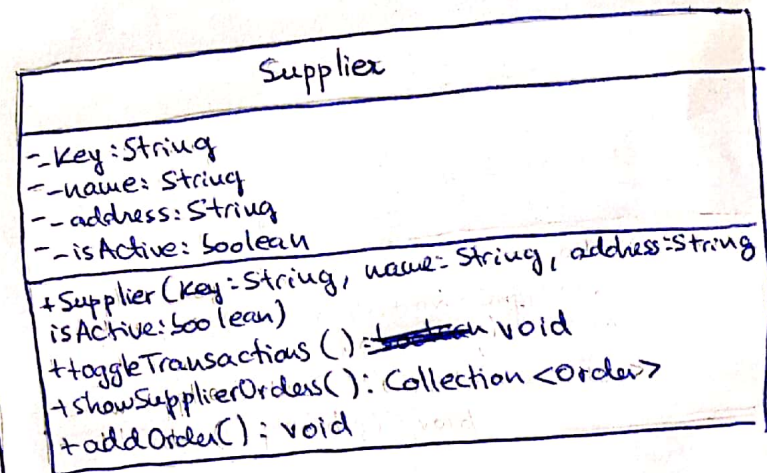 Supplier
-_key:String
-_name: String
-_address: String
-_isActive: boolean
+Supplier(key:String, name: String, address:String
isActive:boolean)
+toggleTransactions(): boolean void
+showSupplierOrders(): Collection <Order>
+addOrder(): void